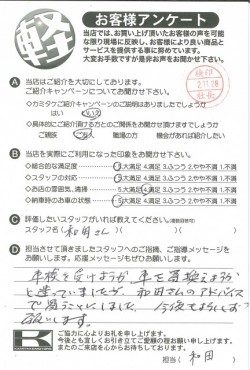 軽
お客様アンケート
当店では、お買い上げ頂いたお客様の声を可能
な限り現場に反映し、お客様により良い商品と
サービスを提供する事に努めています。
大変お手数ですが是非お声をお聞かせ下さい。
A 当店はご紹介を大切にしております。
ご紹介キャンペーンについてお聞かせ下さい。
◇カミタケご紹介キャンペーンのご説明はありましたでしょうか
はい いいえ
◇具体的にご紹介頂ける方とのご関係をお聞かせ頂けますでしょうか
ご親族 ご友人 職場の方 機会があれば紹介したい
B 当店を実際にご利用になった印象をお聞かせ下さい。
◇総合的な満足度 5.大満足 4.満足 3.ふつう 2.やや不満 1.不満
◇スタッフの対応 5.大満足 4.満足 3.ふつう 2.やや不満 1.不満
◇お店の雰囲気、清掃 5.大満足 4.満足 3.ふつう 2.やや不満 1.不満
◇納車時のお車の状態 5.大満足 4.満足 3.ふつう 2.やや不満 1.不満
C 評価したいスタッフがいれば教えてください。(複数回答可)
スタッフ名( 和田さん )
D 担当させて頂きましたスタッフへのご指摘、ご指導メッセージを
お願いします。応援メッセージもぜひお願い致します。
車検を受けようか、車を買換えようか
と迷っていましたが、和田さんのアドバイス
で買うことにしました。今後ともよろしくお
願いします。
ご協力に心よりお礼を申し上げます。
今後とも宜しくお引き立てご愛顧の程お願い申し上げます。
またのご来店を心からお待ちしております。
担当( 和田 )